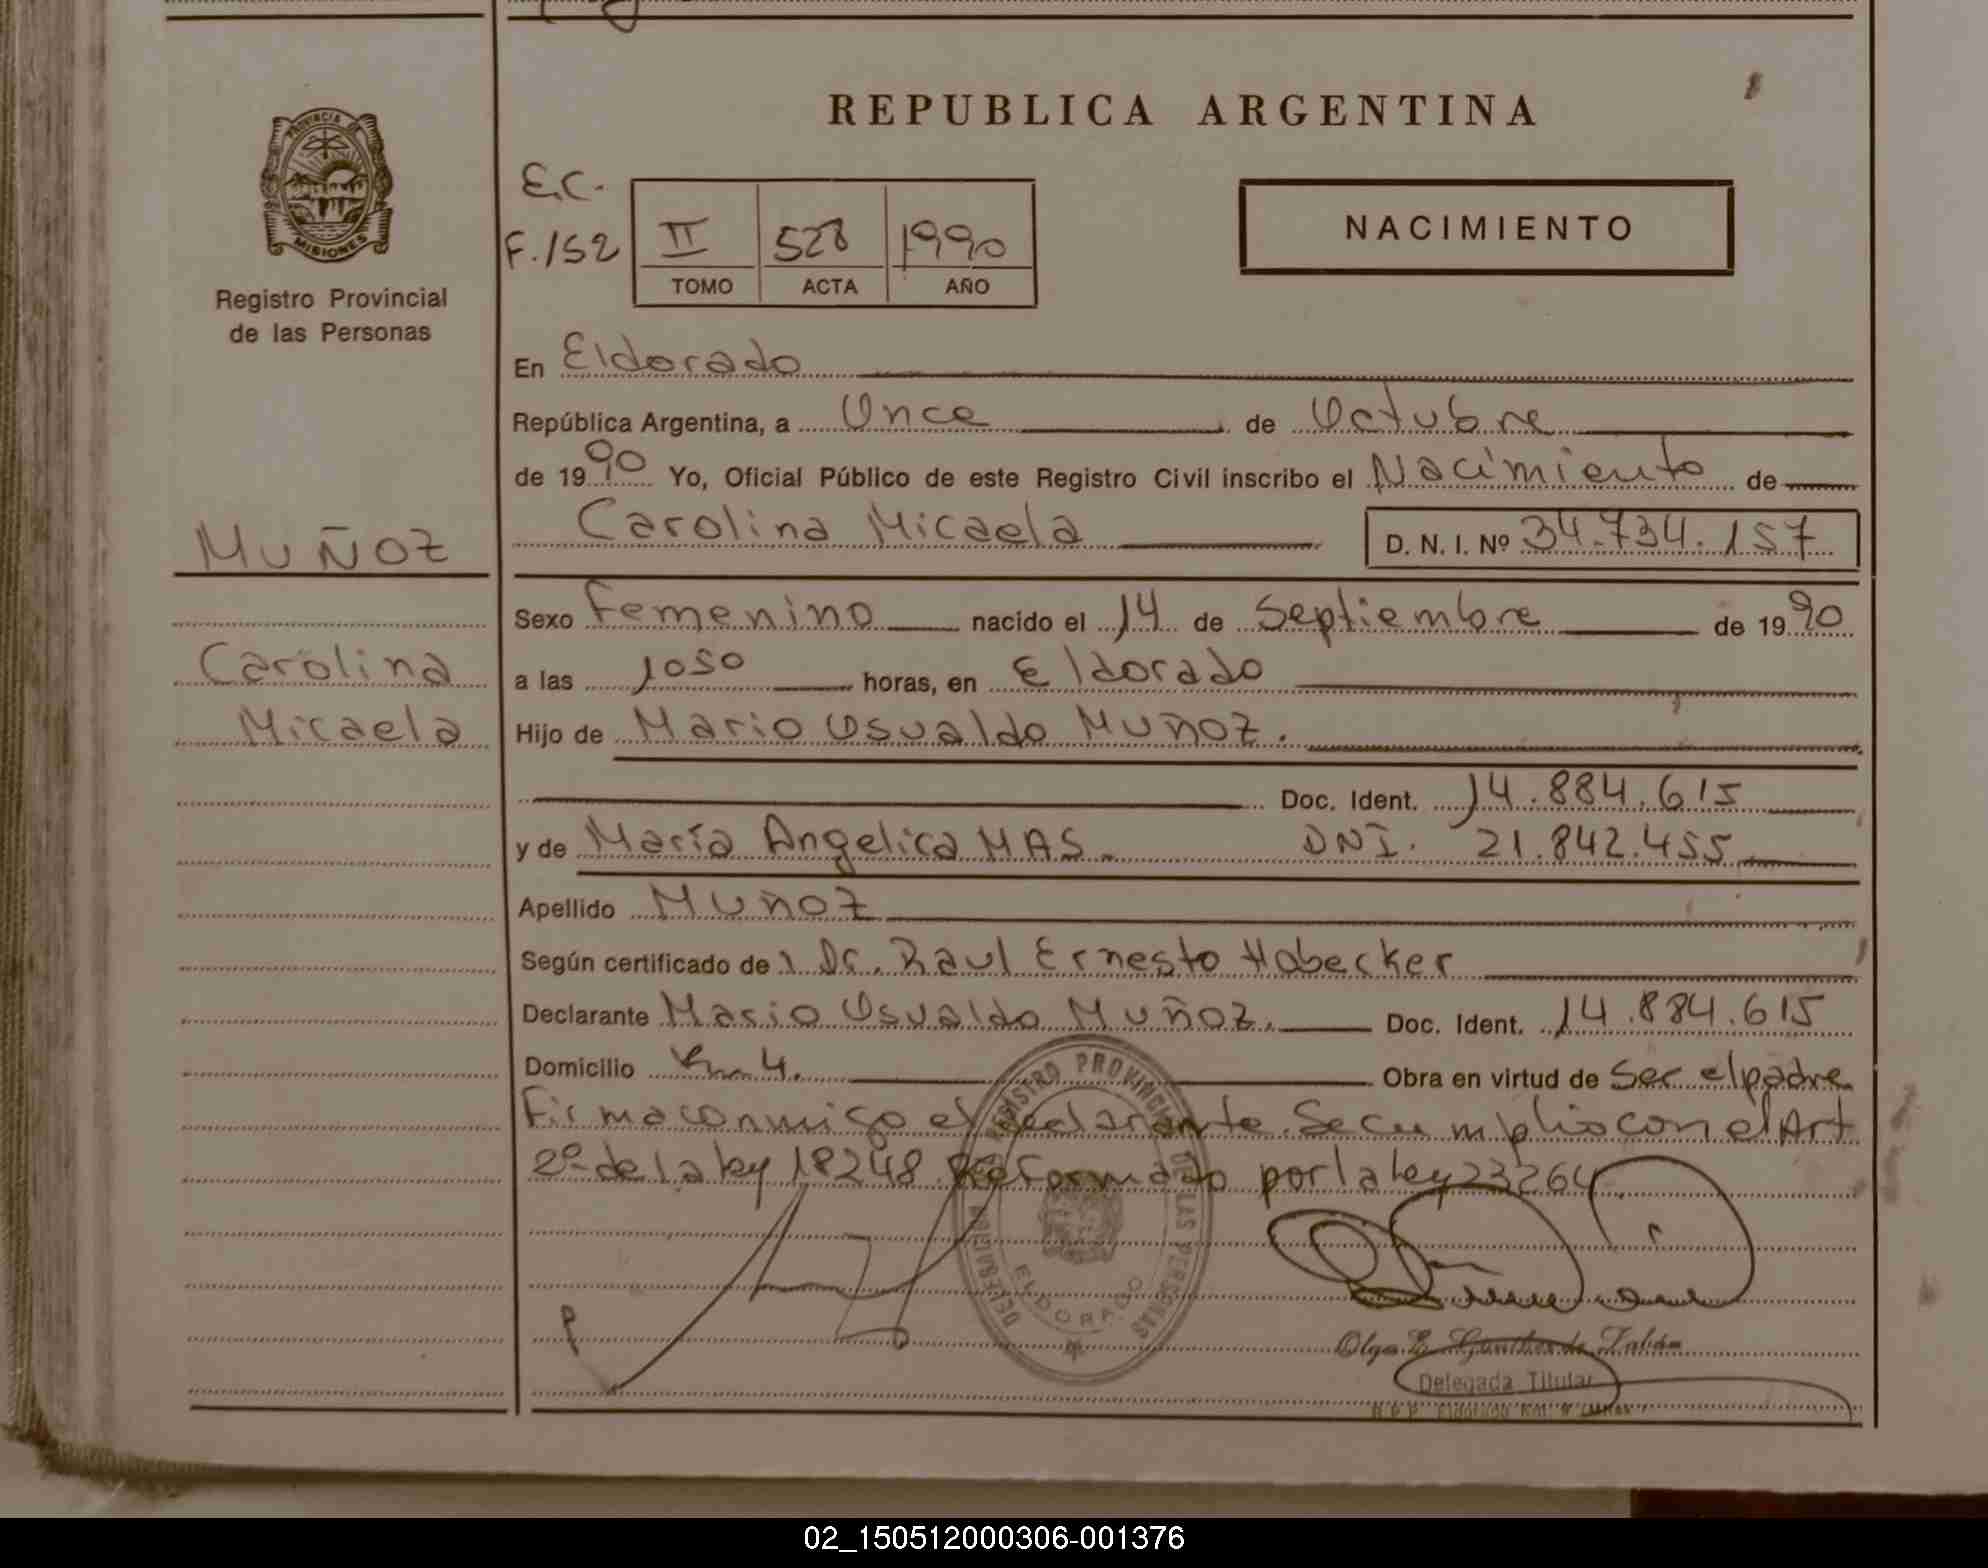 REPUBLICA ARGENTINA
PROVINCIA DE
MISIONES
Registro Provincial
de las Personas
E.C.
F. 152
II 528 1990
TOMO ACTA AÑO
NACIMIENTO
En Eldorado
República Argentina, a Once de Octubre
de 1990 Yo, Oficial Público de este Registro Civil inscribo el Nacimiento de
Carolina Micaela D. N. I. Nº 34.734.157
MUÑOZ
Carolina
Micaela
Sexo Femenino nacido el 14 de Septiembre de 1990
a las 1050 horas, en Eldorado
Hijo de Mario Osvaldo MUÑOZ.
Doc. Ident. 14.884.615
y de María Angelica MAS. DNI. 21.842.455
Apellido MUÑOZ
Según certificado de Dr. Raul Ernesto Habecker
Declarante Mario Osvaldo MUÑOZ. Doc. Ident. 14.884.615
Domicilio Km 4. Obra en virtud de Ser el padre
Firma conmigo el declarante. Se cumplio con el Art
2º de la ley 18248 Reformado por la ley 23264
REGISTRO PROVINCIAL DE LAS PERSONAS
ELDORADO
Olga E. de
Delegada Titular
R.P.P. Eldorado Km. 9
02_150512000306-001376